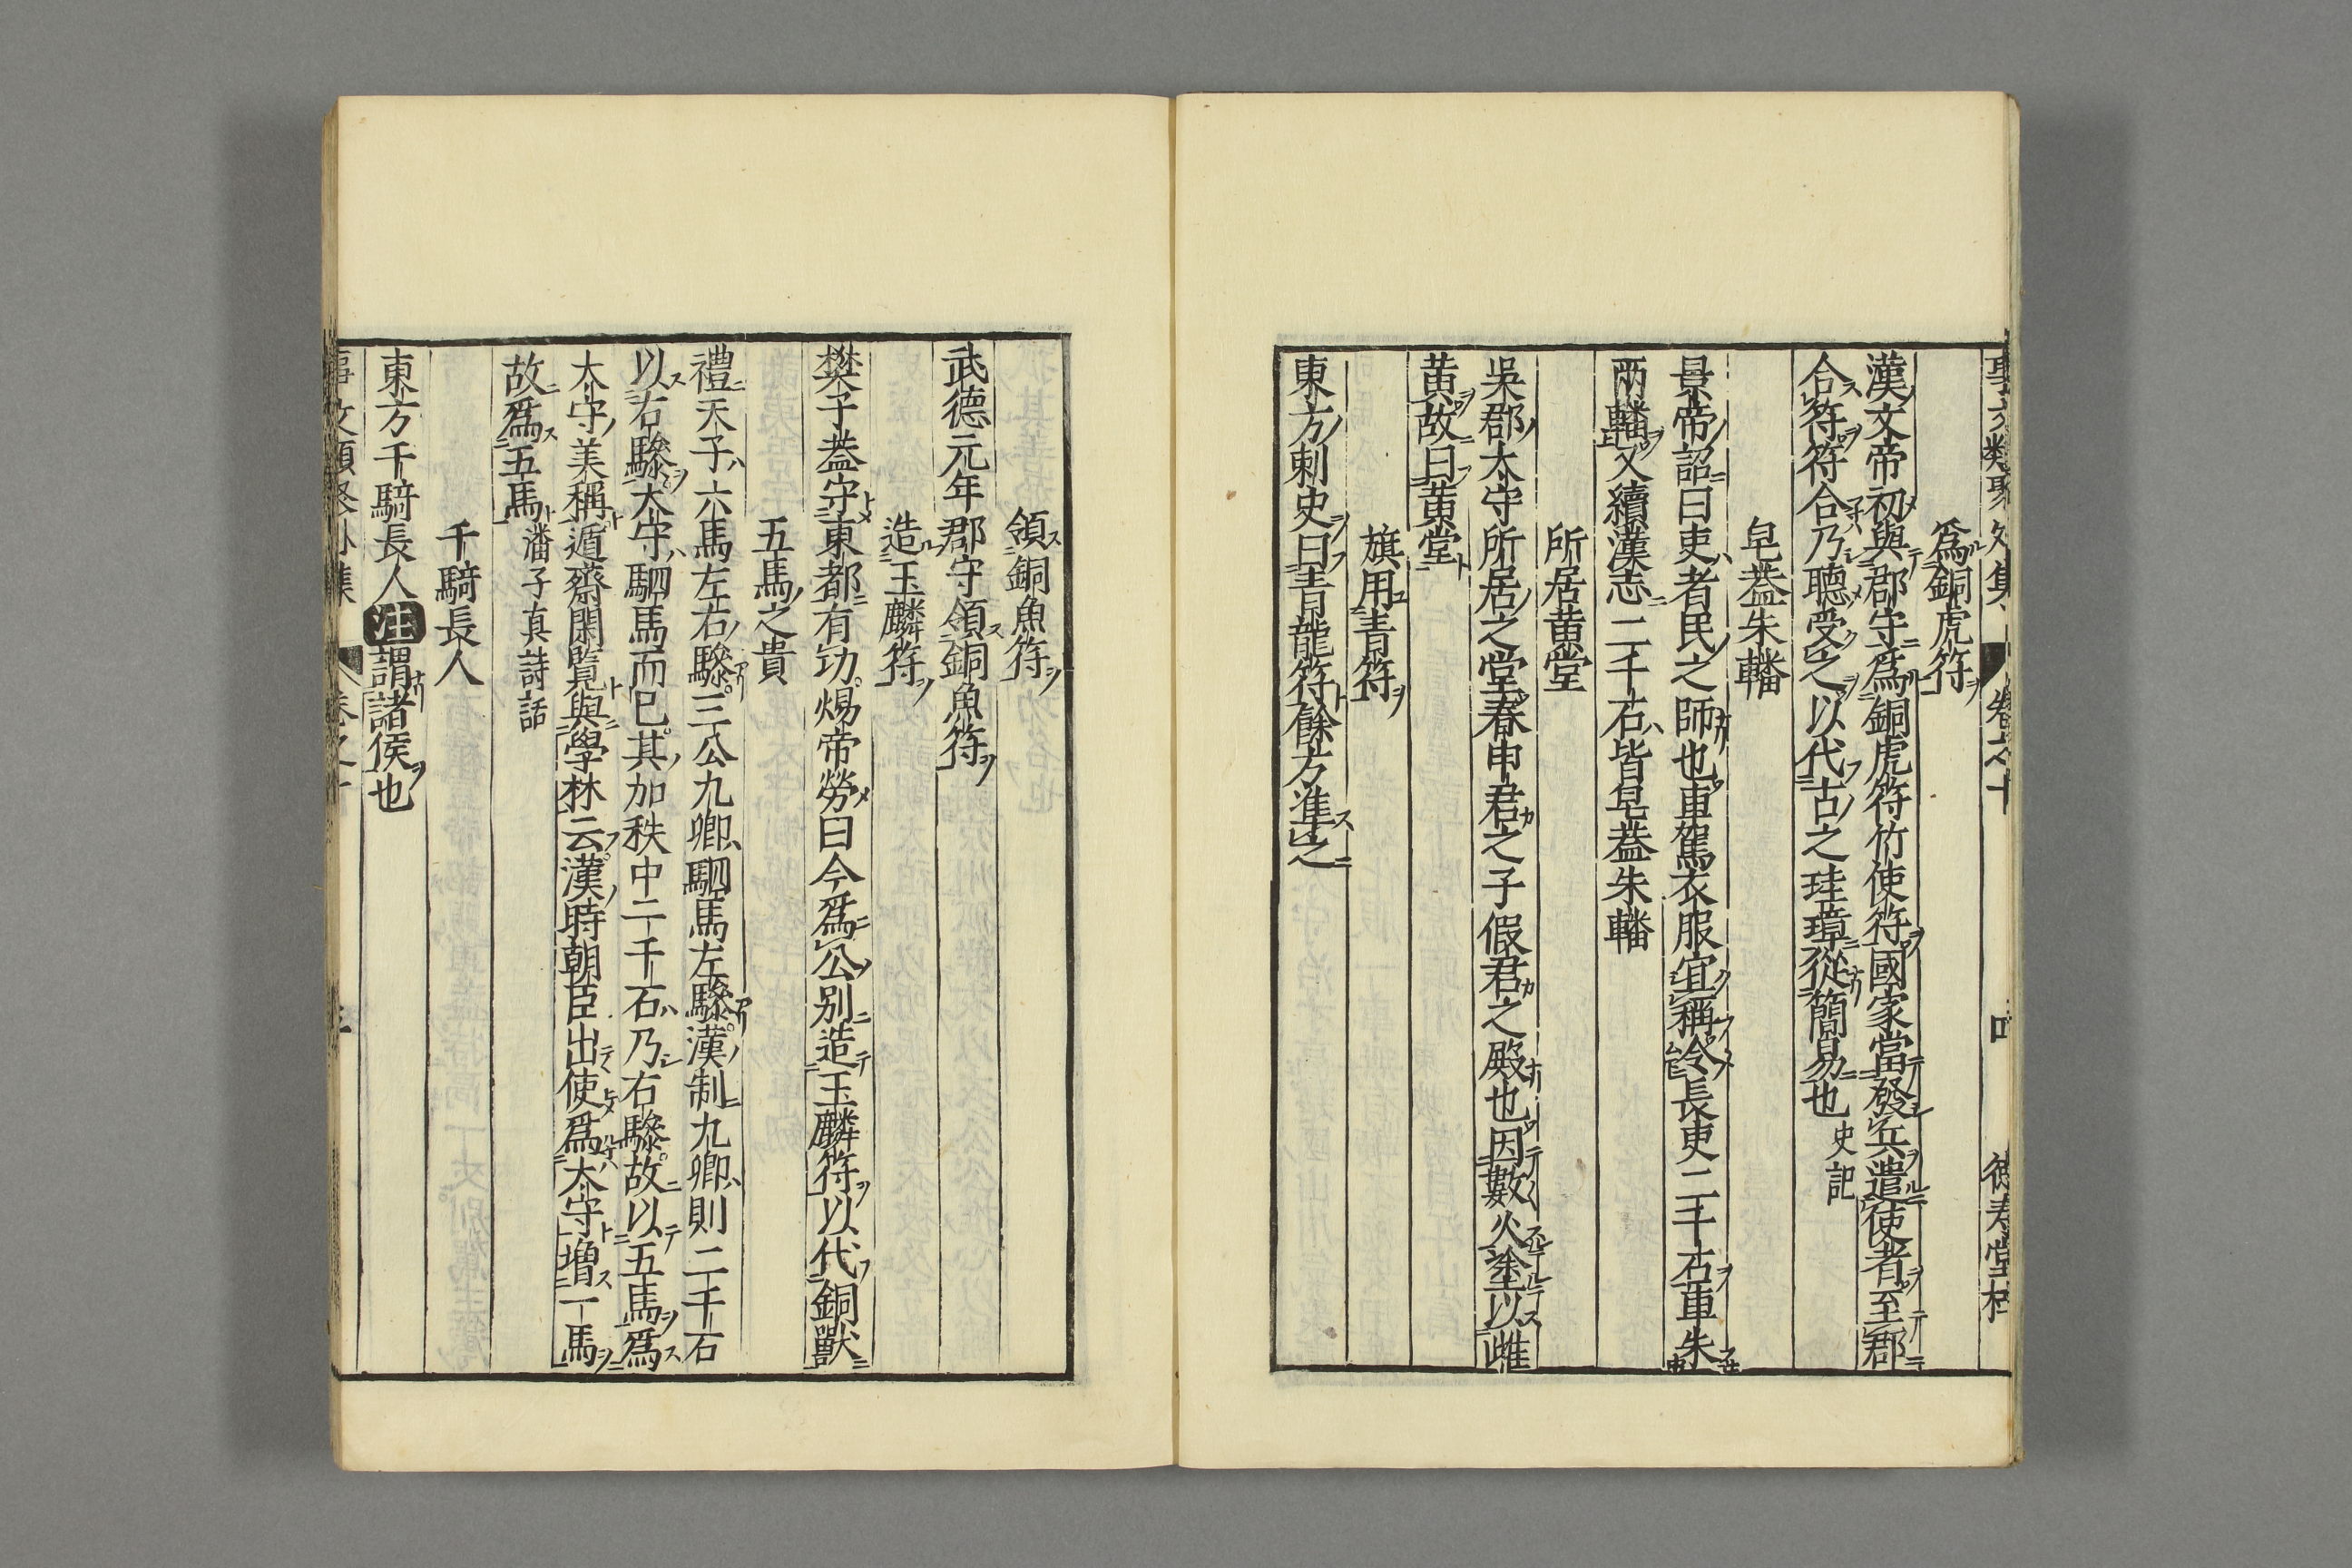 爲銅虎符
漢文帝初與郡守爲銅虎符竹使符國家當發兵遣使者至郡
合符符合乃聽受之以代古之珪璋從簡易也史記
皂葢朱轓
景帝詔曰吏者民之師也車駕衣服宜稱令長吏二千石車朱
兩轓又續漢志二千石皆皂葢朱轓
所居黄堂
吳郡太守所居之堂春申君之子假君之殿也因數火塗以雌
黄故曰黄堂
旗用青符
東方刺史曰青龍符餘方准之
領銅魚符
武德元年郡守領銅魚符
造玉麟符
樊子葢守東都有功煬帝勞曰今爲公别造玉麟符以代銅獸
五馬之貴
禮天子六馬左右驂三公九卿駟馬左驂漢制九卿則二千石
以右驂太守駟馬而已其加秩中二千石乃右驂故以五馬爲
太守美稱遁齋閑覽與學林云漢時朝臣出使爲太守增一馬
故爲五馬潘子真詩話
千騎長人
東方千騎長人注謂諸侯也